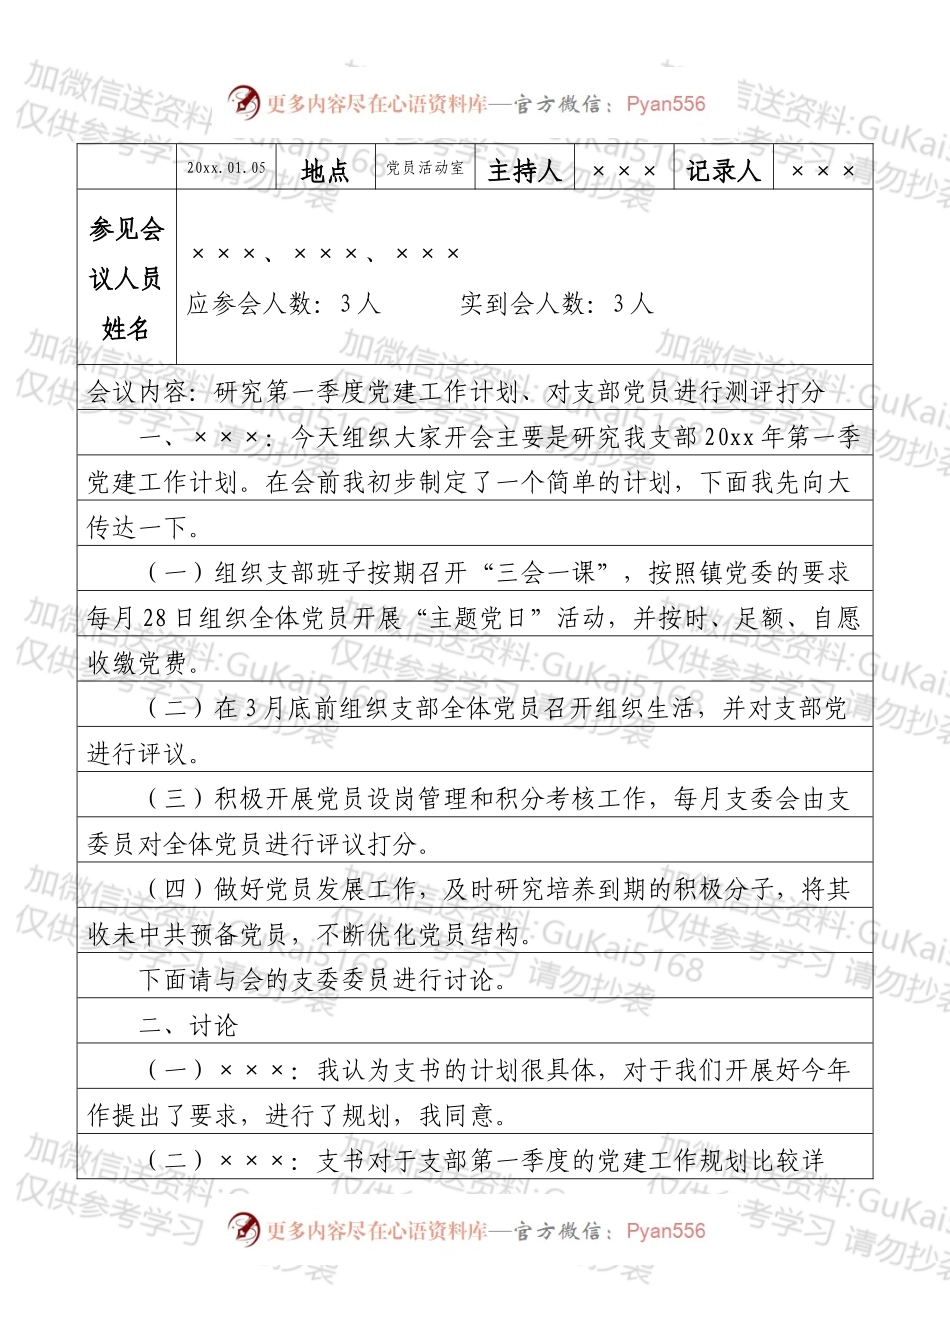 更多内容尽在心语资料库—官方微信：Pyan556
20xx.01.05 地点 党员活动室 主持人 ××× 记录人 ×××
参见会
议人员
姓名
×××、×××、×××
应参会人数：3人 实到会人数：3人
会议内容：研究第一季度党建工作计划、对支部党员进行测评打分
一、×××：今天组织大家开会主要是研究我支部20xx年第一季
党建工作计划。在会前我初步制定了一个简单的计划，下面我先向大
传达一下。
（一）组织支部班子按期召开“三会一课”，按照镇党委的要求
每月28日组织全体党员开展“主题党日”活动，并按时、足额、自愿
收缴党费。
（二）在3月底前组织支部全体党员召开组织生活，并对支部党
进行评议。
（三）积极开展党员设岗管理和积分考核工作，每月支委会由支
委员对全体党员进行评议打分。
（四）做好党员发展工作，及时研究培养到期的积极分子，将其
收未中共预备党员，不断优化党员结构。
下面请与会的支委委员进行讨论。
二、讨论
（一）×××：我认为支书的计划很具体，对于我们开展好今年
作提出了要求，进行了规划，我同意。
（二）×××：支书对于支部第一季度的党建工作规划比较详
更多内容尽在心语资料库—官方微信：Pyan556
加微信送资料:GuKai5168
仅供参考学习 请勿抄袭